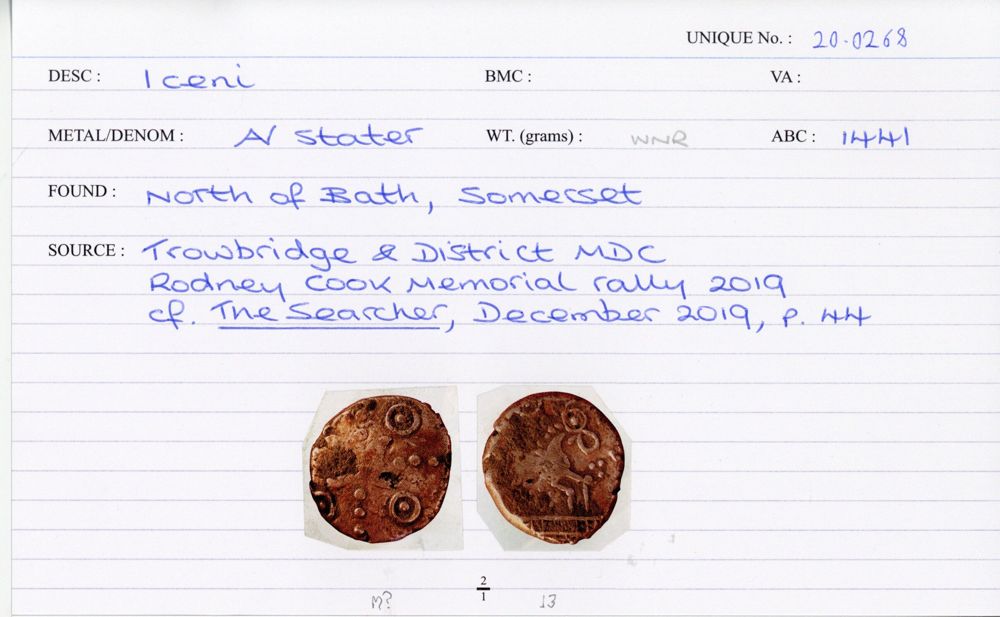 UNIQUE No. : 20-0268
DESC : Iceni BMC : VA :
METAL/DENOM : AV Stater WT. (grams) : WNR ABC : 1441
FOUND : North of Bath, Somerset
SOURCE : Trowbridge & District MDC
Rodney Cook Memorial rally 2019
cf. The Searcher, December 2019, p. 44
2
1
M? 13